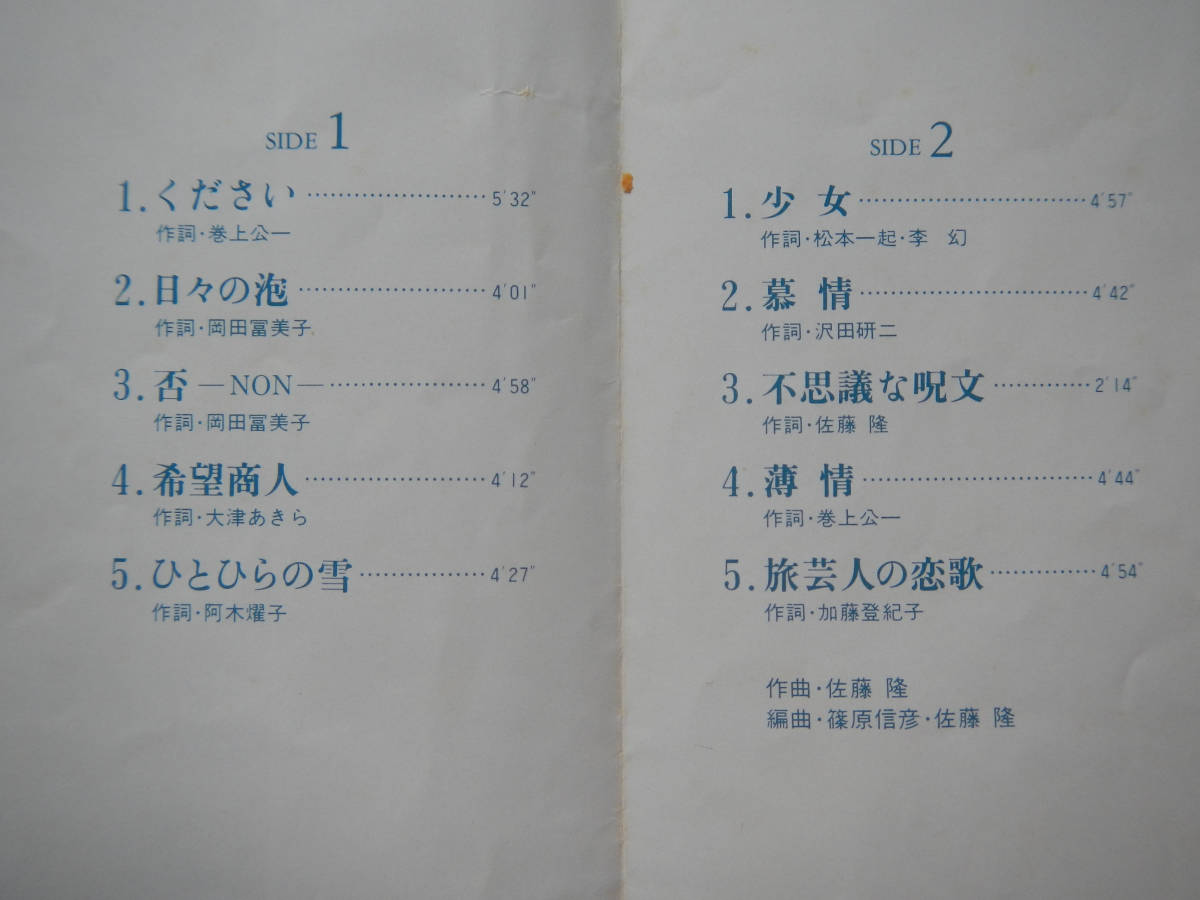 SIDE 1
1.ください……………………5′32″
作詞・巻上公一
2.日々の泡……………………4′01″
作詞・岡田冨美子
3.否 —NON—…………………4′58″
作詞・岡田冨美子
4.希望商人……………………4′12″
作詞・大津あきら
5.ひとひらの雪………………4′27″
作詞・阿木燿子
SIDE 2
1.少 女…………………………4′57″
作詞・松本一起・李 幻
2.慕 情…………………………4′42″
作詞・沢田研二
3.不思議な呪文…………2′14″
作詞・佐藤 隆
4.薄 情…………………………4′44″
作詞・巻上公一
5.旅芸人の恋歌……………4′54″
作詞・加藤登紀子
作曲・佐藤 隆
編曲・篠原信彦・佐藤 隆